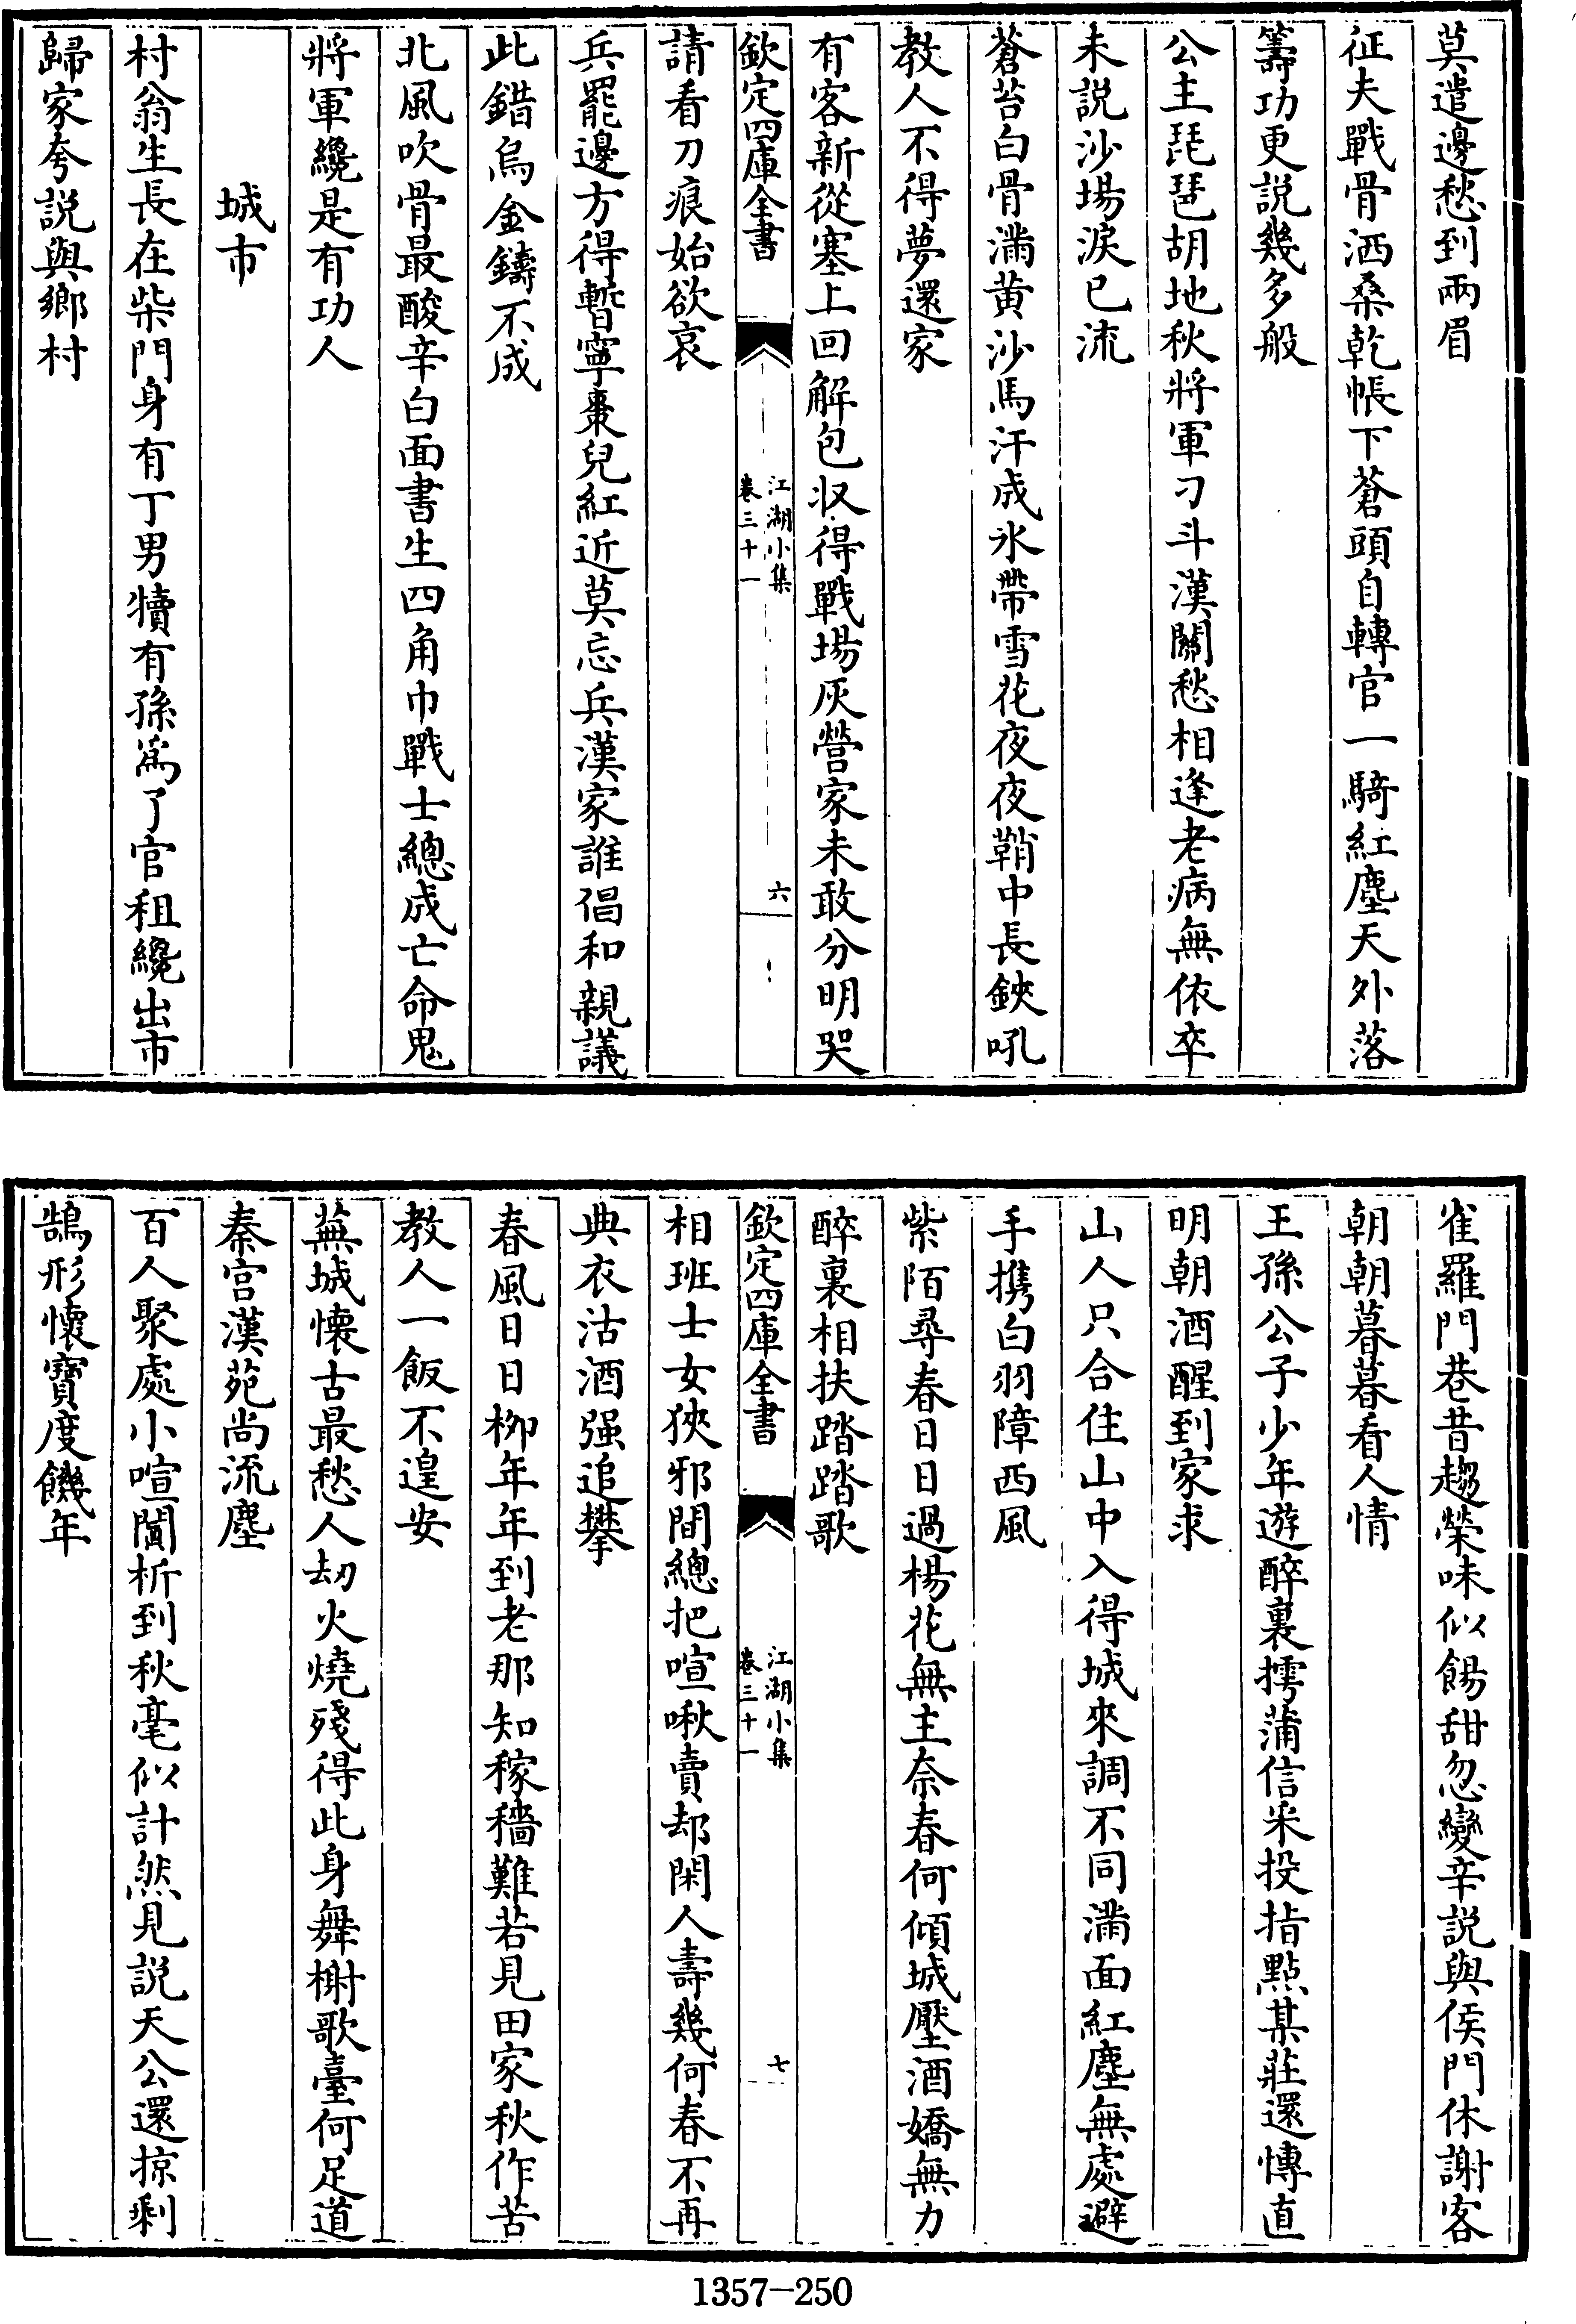 莫遣邊愁到兩眉
征夫戰骨洒桑乾帳下蒼頭自轉官一騎紅塵天外落
籌功更説幾多般
公主琵琶胡地秋將軍刁斗漢關愁相逢老病無依卒
未説沙場淚已流
蒼苔白骨滿黄沙馬汗成氷帶雪花夜夜鞘中長鋏吼
教人不得夢還家
有客新從塞上回解包収得戰場灰營家未敢分明哭
欽定四庫全書
江湖小集
卷三十一
六
請看刀痕始欲哀
兵罷邊方得暫寧棗兒紅近莫忘兵漢家誰倡和親議
此錯烏金鑄不成
北風吹骨最酸辛白面書生四角巾戰士總成亡命鬼
將軍纔是有功人
城市
村翁生長在柴門身有丁男犢有孫為了官租纔出市
歸家夸説與鄉村
雀羅門巷昔趨榮味似餳甜忽變辛説與侯門休謝客
朝朝暮暮看人情
王孫公子少年遊醉裏摴蒲信采投指點某莊還慱直
明朝酒醒到家求
山人只合住山中入得城來調不同滿面紅塵無處避
手携白羽障西風
紫陌尋春日日過楊花無主奈春何傾城壓酒嬌無力
醉裏相扶踏踏歌
欽定四庫全書
江湖小集
卷三十一
七
相班士女狹邪間總把喧啾賣却閑人壽幾何春不再
典衣沽酒强追攀
春風日日柳年年到老那知稼穡難若見田家秋作苦
教人一飯不遑安
蕪城懷古最愁人劫火燒殘得此身舞榭歌臺何足道
秦宫漢苑尚流塵
百人聚處小喧闐析到秋毫似計然見説天公還掠剩
鵠形懷寳度饑年
1357-250